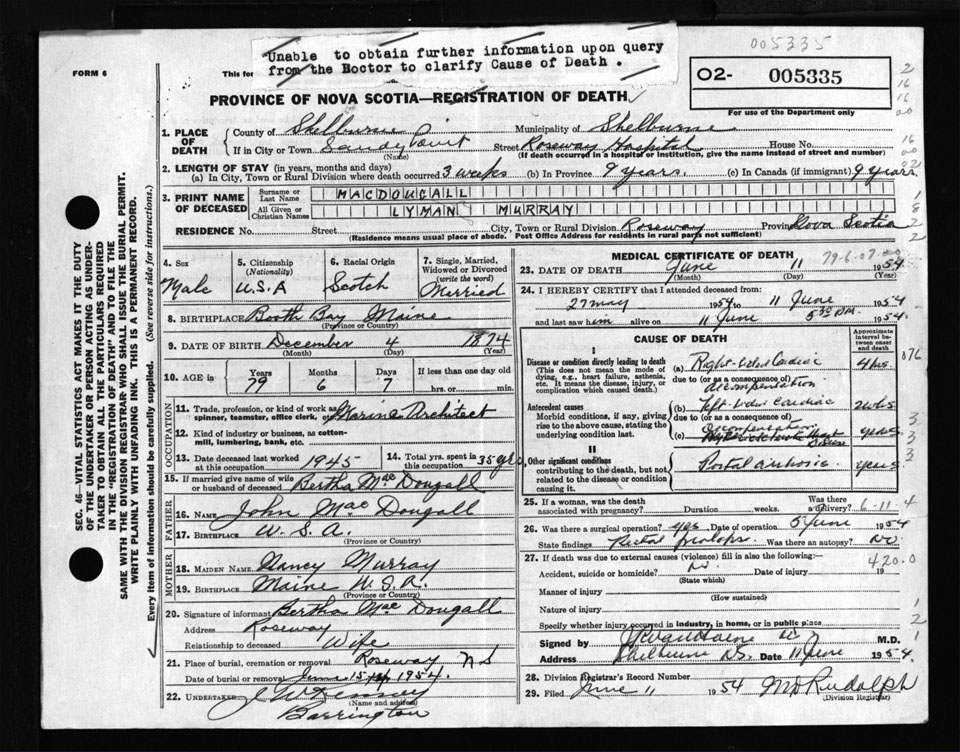 005335
Unable to obtain further information upon query
from the Boctor to clarify Cause of Death .
FORM 6
This for
02- 005335
For use of the Department only
PROVINCE OF NOVA SCOTIA—REGISTRATION OF DEATH
1. PLACE OF DEATH
County of Shelburne Municipality of Shelburne
If in City or Town Sandy Point Street Roseway Hospital House No.
(Name) (If death occurred in a hospital or institution, give the name instead of street and number)
2. LENGTH OF STAY (in years, months and days)
(a) In City, Town or Rural Division where death occurred 3 weeks (b) In Province 9 years. (c) In Canada (if immigrant) 9 years.
3. PRINT NAME OF DECEASED
Surname or Last Name MACDOUGALL
All Given or Christian Names LYMAN MURRAY
RESIDENCE No. Street City, Town or Rural Division Roseway Province Nova Scotia
(Residence means usual place of abode. Post Office Address for residents in rural parts not sufficient)
4. Sex Male
5. Citizenship (Nationality) U.S.A
6. Racial Origin Scotch
7. Single, Married, Widowed or Divorced (write the word) Merried
8. BIRTHPLACE Booth Bay Maine
(Province or Country)
9. DATE OF BIRTH December 4 1874
(Month) (Day) (Year)
10. AGE is Years 79 Months 6 Days 7 If less than one day old hrs. or min.
OCCUPATION
11. Trade, profession, or kind of work as spinner, teamster, office clerk, etc. Marine Architect
12. Kind of industry or business, as cotton-mill, lumbering, bank, etc.
13. Date deceased last worked at this occupation 1945 14. Total yrs. spent in this occupation 35 yrs
15. If married give name of wife or husband of deceased Bertha MacDougall
FATHER
16. NAME John MacDougall
17. BIRTHPLACE U.S.A.
(Province or Country)
MOTHER
18. MAIDEN NAME Nancy Murray
19. BIRTHPLACE Maine U.S.A.
(Province or Country)
20. Signature of informant Bertha MacDougall
Address Roseway
Relationship to deceased Wife
21. Place of burial, cremation or removal Roseway N S
Date of burial or removal June 15 1954.
22. UNDERTAKER J W Kenney
(Name and address)
Barrington
MEDICAL CERTIFICATE OF DEATH
79-6-07-00
23. DATE OF DEATH June 11 1954
(Month) (Day)
24. I HEREBY CERTIFY that I attended deceased from:
27 may 1954 to 11 June 1954
and last saw him alive on 11 June 5:30 PM. 1954.
CAUSE OF DEATH
Approximate interval between onset and death
I
Disease or condition directly leading to death
(This does not mean the mode of dying, e.g., heart failure, asthenia, etc. It means the disease, injury, or complication which caused death.)
(a) Right-sided Cardiac 4 hrs.
due to (or as a consequence of)
decompensation
Antecedent causes
Morbid conditions, if any, giving rise to the above cause, stating the underlying condition last.
(b) left-sided cardiac 2 wks.
due to (or as a consequence of)
decompensation
(c) years
II
Other significant conditions
contributing to the death, but not related to the disease or condition causing it.
Portal cirrhosis. years
25. If a woman, was the death associated with pregnancy? Duration weeks. Was there a delivery? 6-11-4
26. Was there a surgical operation? yes Date of operation 5 June 1954
State findings Rectal prolapse Was there an autopsy? No
27. If death was due to external causes (violence) fill in also the following:—
420.0
Accident, suicide or homicide? Date of injury 19
(State which)
Manner of injury
(How sustained)
Nature of injury
Specify whether injury occurred in industry, in home, or in public place
Signed by M.D.
Address Shelburne N.S. Date 11 June 1954.
28. Division Registrar's Record Number
29. Filed June 11 1954 M D Rudolph
(Division Registrar)
SEC. 46—VITAL STATISTICS ACT MAKES IT THE DUTY
OF THE UNDERTAKER OR PERSON ACTING AS UNDER-
TAKER TO OBTAIN ALL THE PARTICULARS REQUIRED
IN THE "REGISTRATION OF DEATH" AND TO FILE THE
SAME WITH THE DIVISION REGISTRAR WHO SHALL ISSUE THE BURIAL PERMIT.
WRITE PLAINLY WITH UNFADING INK. THIS IS A PERMANENT RECORD.
Every item of information should be carefully supplied. (See reverse side for instructions.)